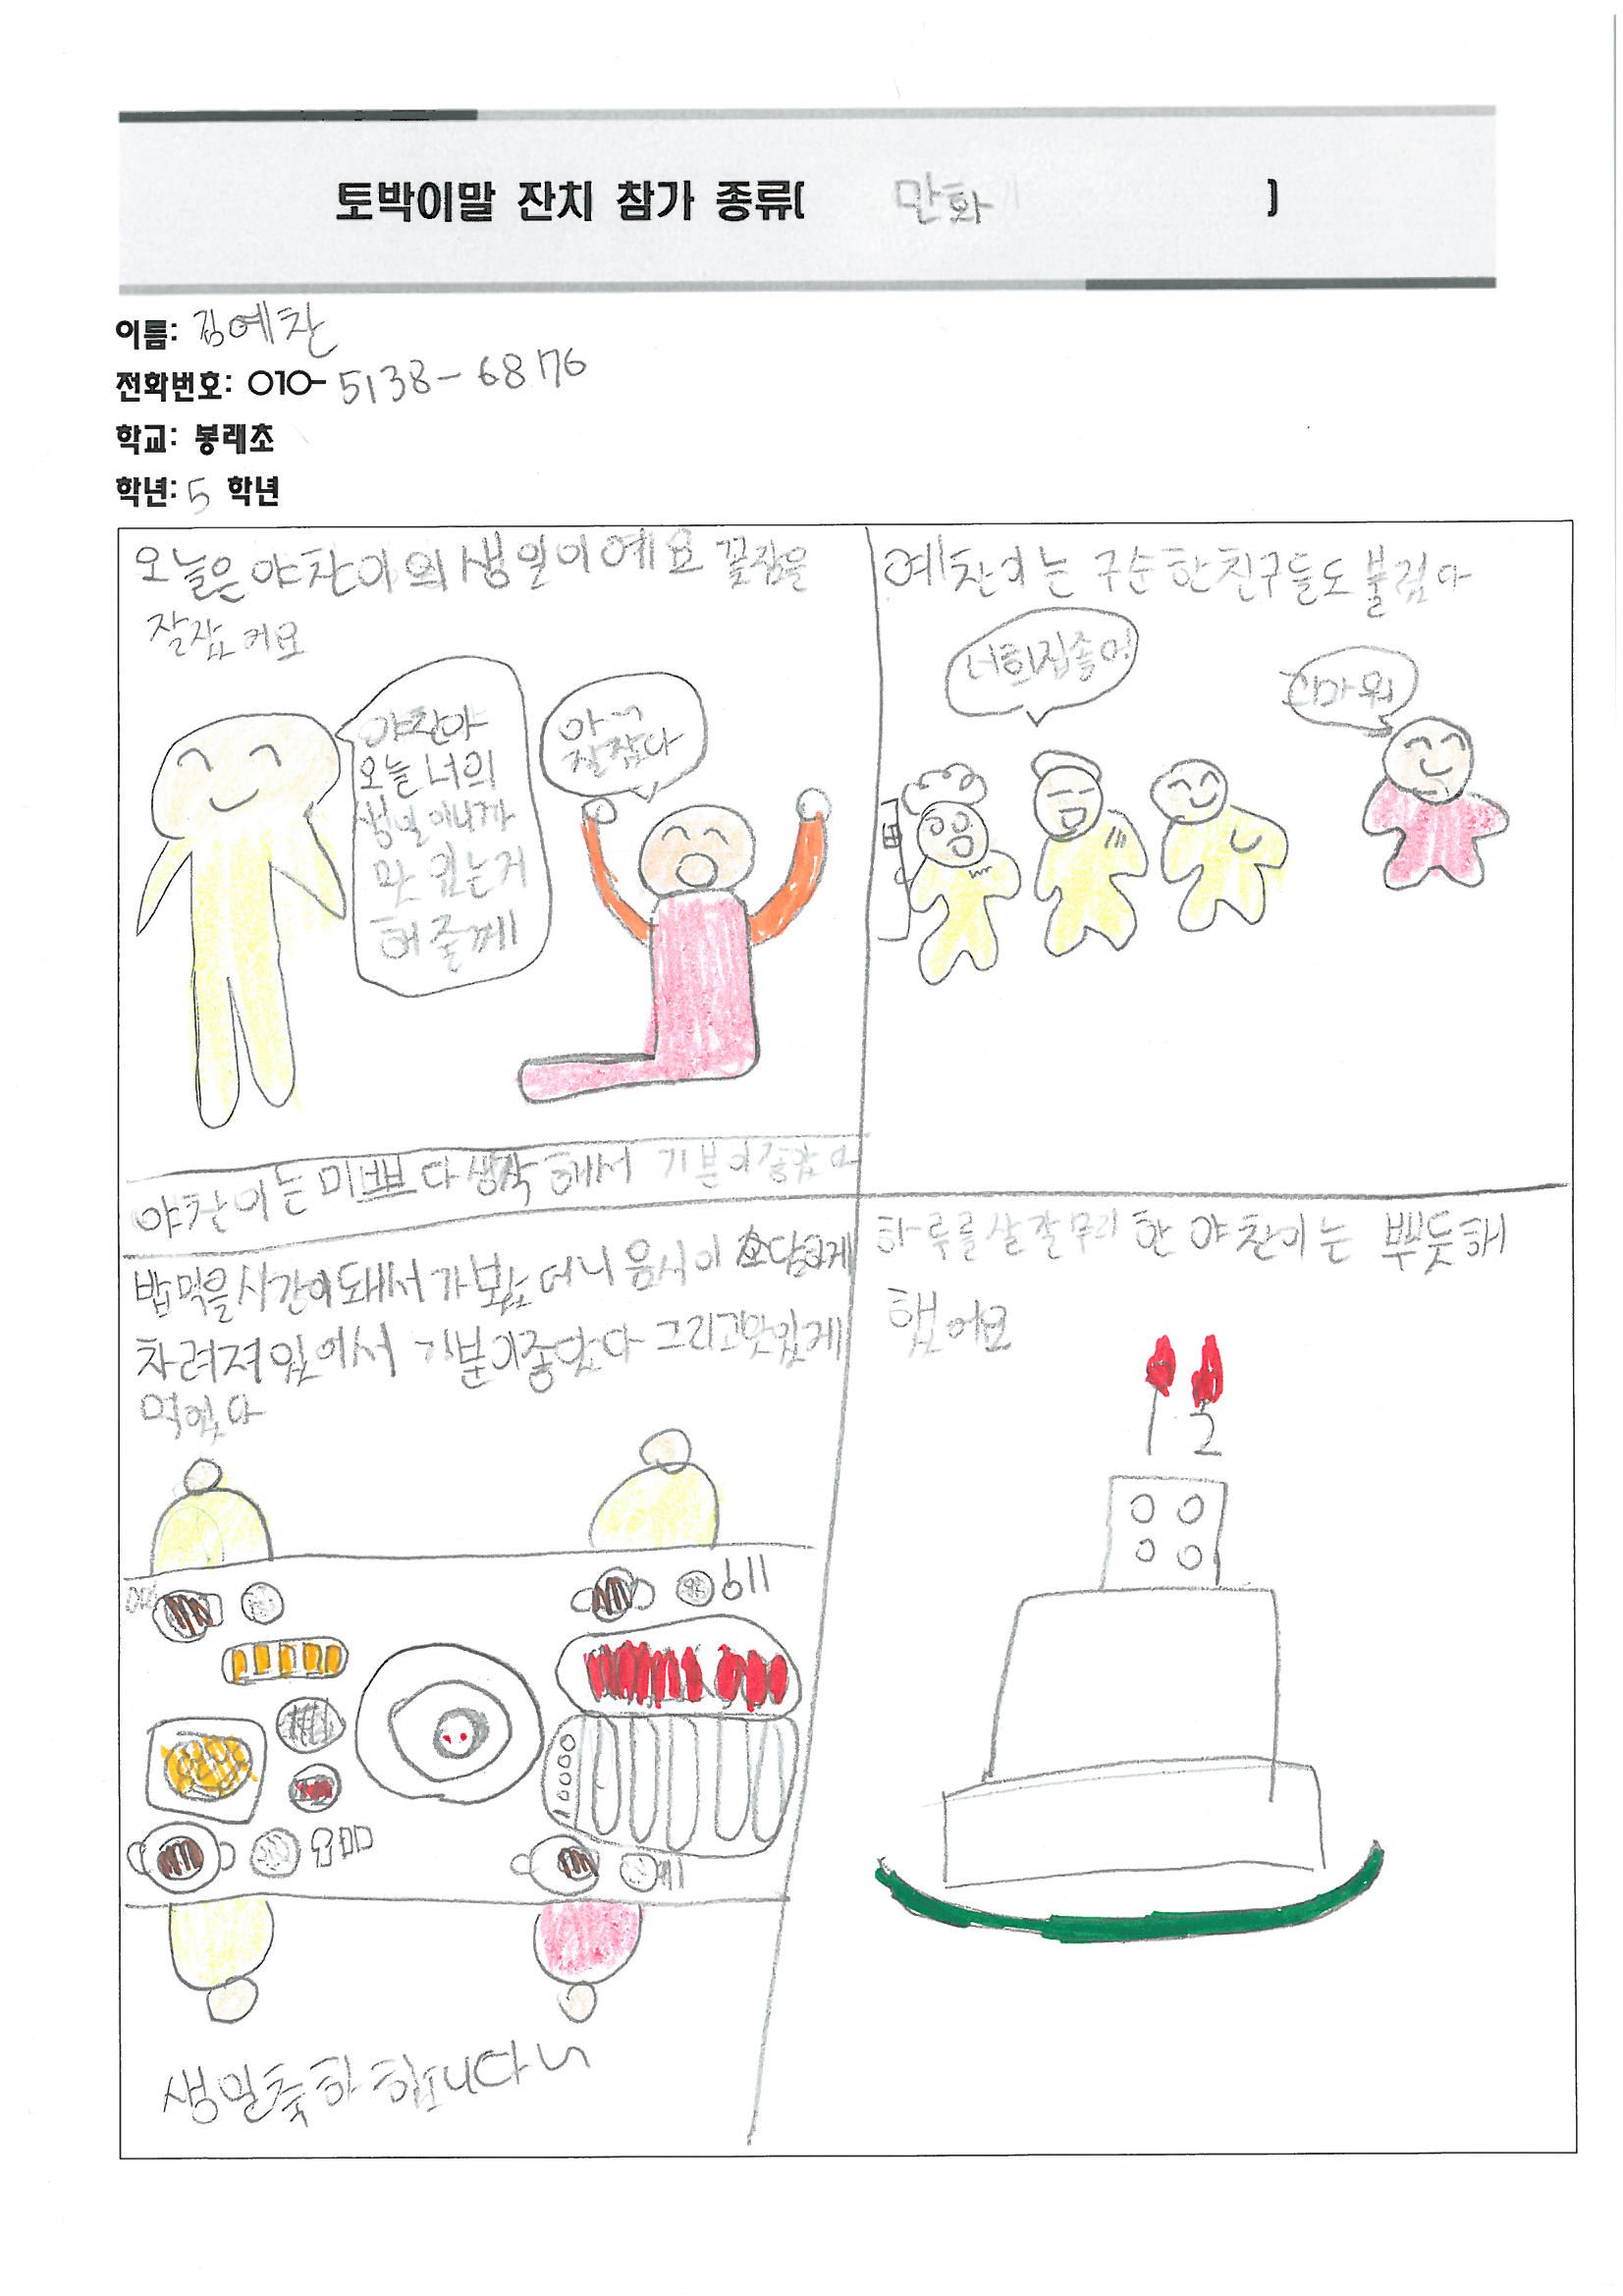 토박이말 잔치 참가 종류( 만화 )
이름: 김예찬
전화번호: 010-5138-6876
학교: 봉래초
학년: 5 학년
오늘은 야찬이의 생일이예요 꽃잠을
잘잤어요
야찬아
오늘 너의
생일이니까
맛있는거
해줄께
아~
잘잤다
야찬이는 미쁘다 생각해서 기분이좋았다
예찬이는 구순한친구들도 불렀다
너희집좋아!
고마워
밥먹을시간이돼서 가봤더니 음식이 소담하게
차려져있어서 기분이좋았다 그리고맛있게
먹었다
생일축하합니다~
하루를살갈무리한 야찬이는 뿌듯해
했어요
12